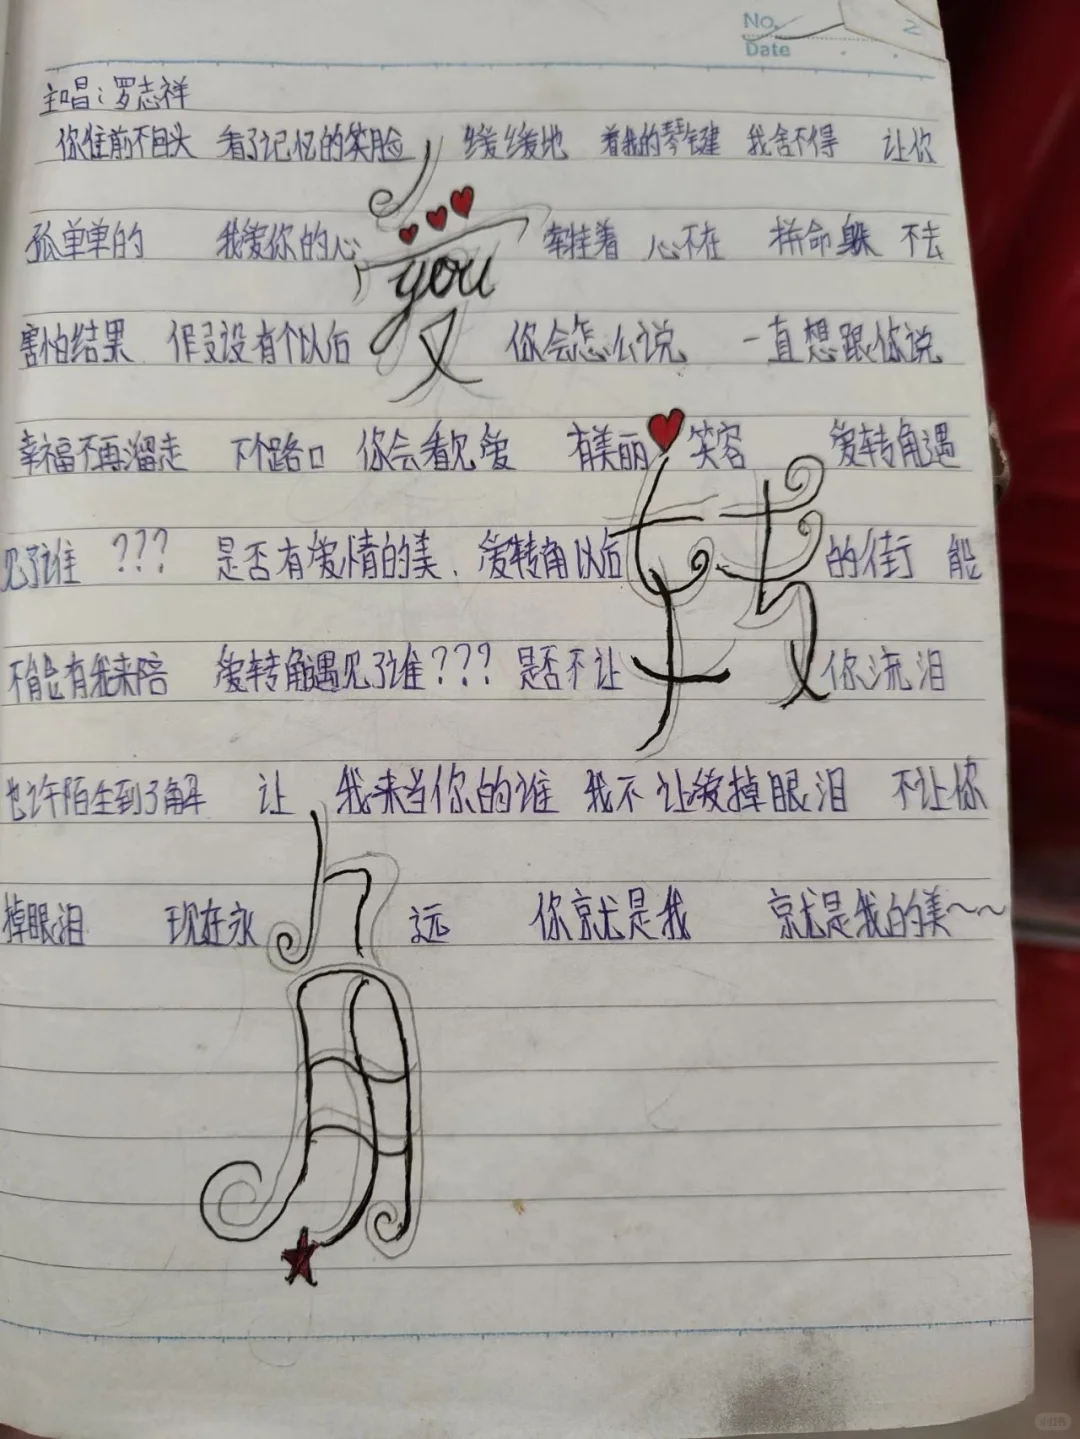 No.
Date
2
主唱：罗志祥
你往前不回头 看了记忆的笑脸 缓缓地 着我的琴键 我舍不得 让你
孤单单的 我爱你的心 牵挂着 心不在 拼命躲 不去
害怕结果 假设没有个以后 你会怎么说 一直想跟你说
幸福不再溜走 下个路口 你会看见爱 有美丽 笑容 爱转角遇
见了谁 ??? 是否有爱情的美. 爱转角以后 的街 能
不能有我来陪 爱转角遇见了谁??? 是否不让 你流泪
也许陌生到了解 让 我来当你的谁 我不让爱掉眼泪 不让你
掉眼泪 现在永 远 你就是我 就是我的美~~
爱
you
转
角
小红书